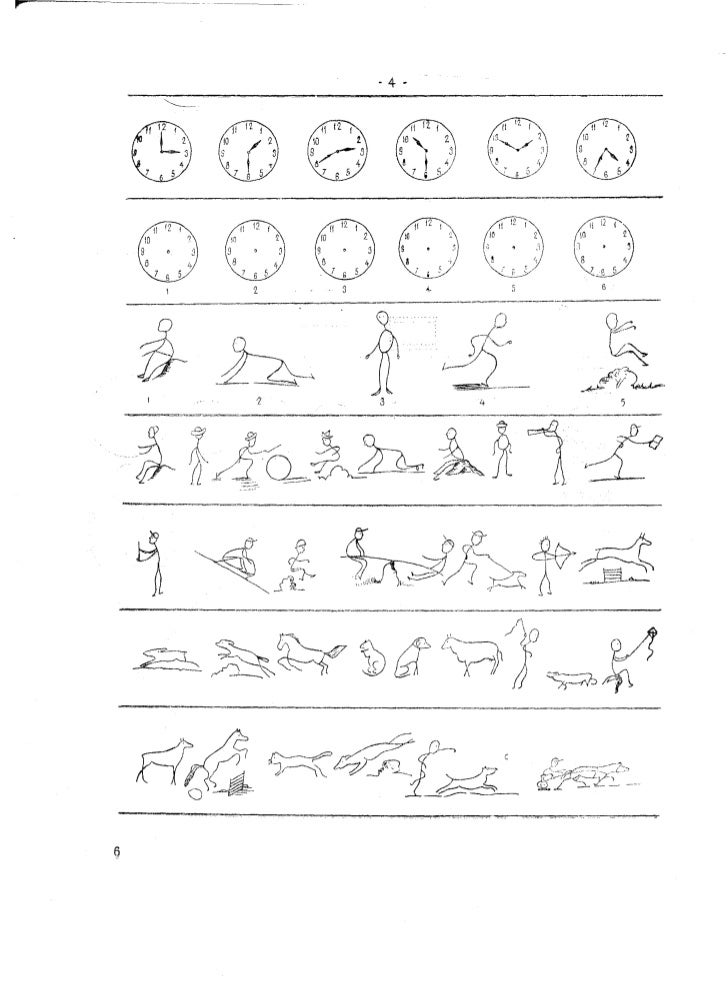 - 4 -
11 12 1 10 2 9 3 8 4 7 6 5
11 12 1 10 2 9 3 8 4 7 6 5
11 12 1 10 2 9 3 8 4 7 6 5
11 12 1 10 2 9 3 8 4 7 6 5
11 12 1 10 2 9 3 8 4 7 6 5
11 12 1 10 2 9 3 8 4 7 6 5
11 12 1 10 2 9 3 8 4 7 6 5
11 12 1 10 2 9 3 8 4 7 6 5
11 12 1 10 2 9 3 8 4 7 6 5
11 12 1 10 2 9 3 8 4 7 6 5
11 12 1 10 2 9 3 8 4 7 6 5
11 12 1 10 2 9 3 8 4 7 6 5
1 2 3 4 5 6
1 2 3 4 5
6